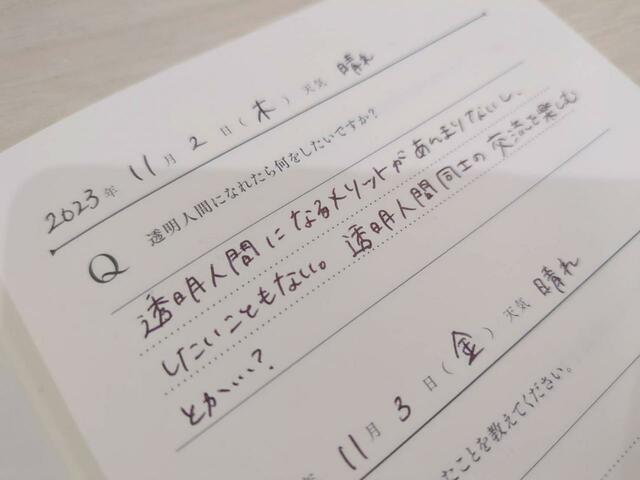 2023年 11月 2日(木) 天気 晴れ
Q 透明人間になれたら何をしたいですか?
透明人間になるメリットがあんまりないし、
したいこともない。透明人間同士の交流を楽しむ
とかい?
年 11月 3日(金) 天気 晴れ
たことを教えてください。